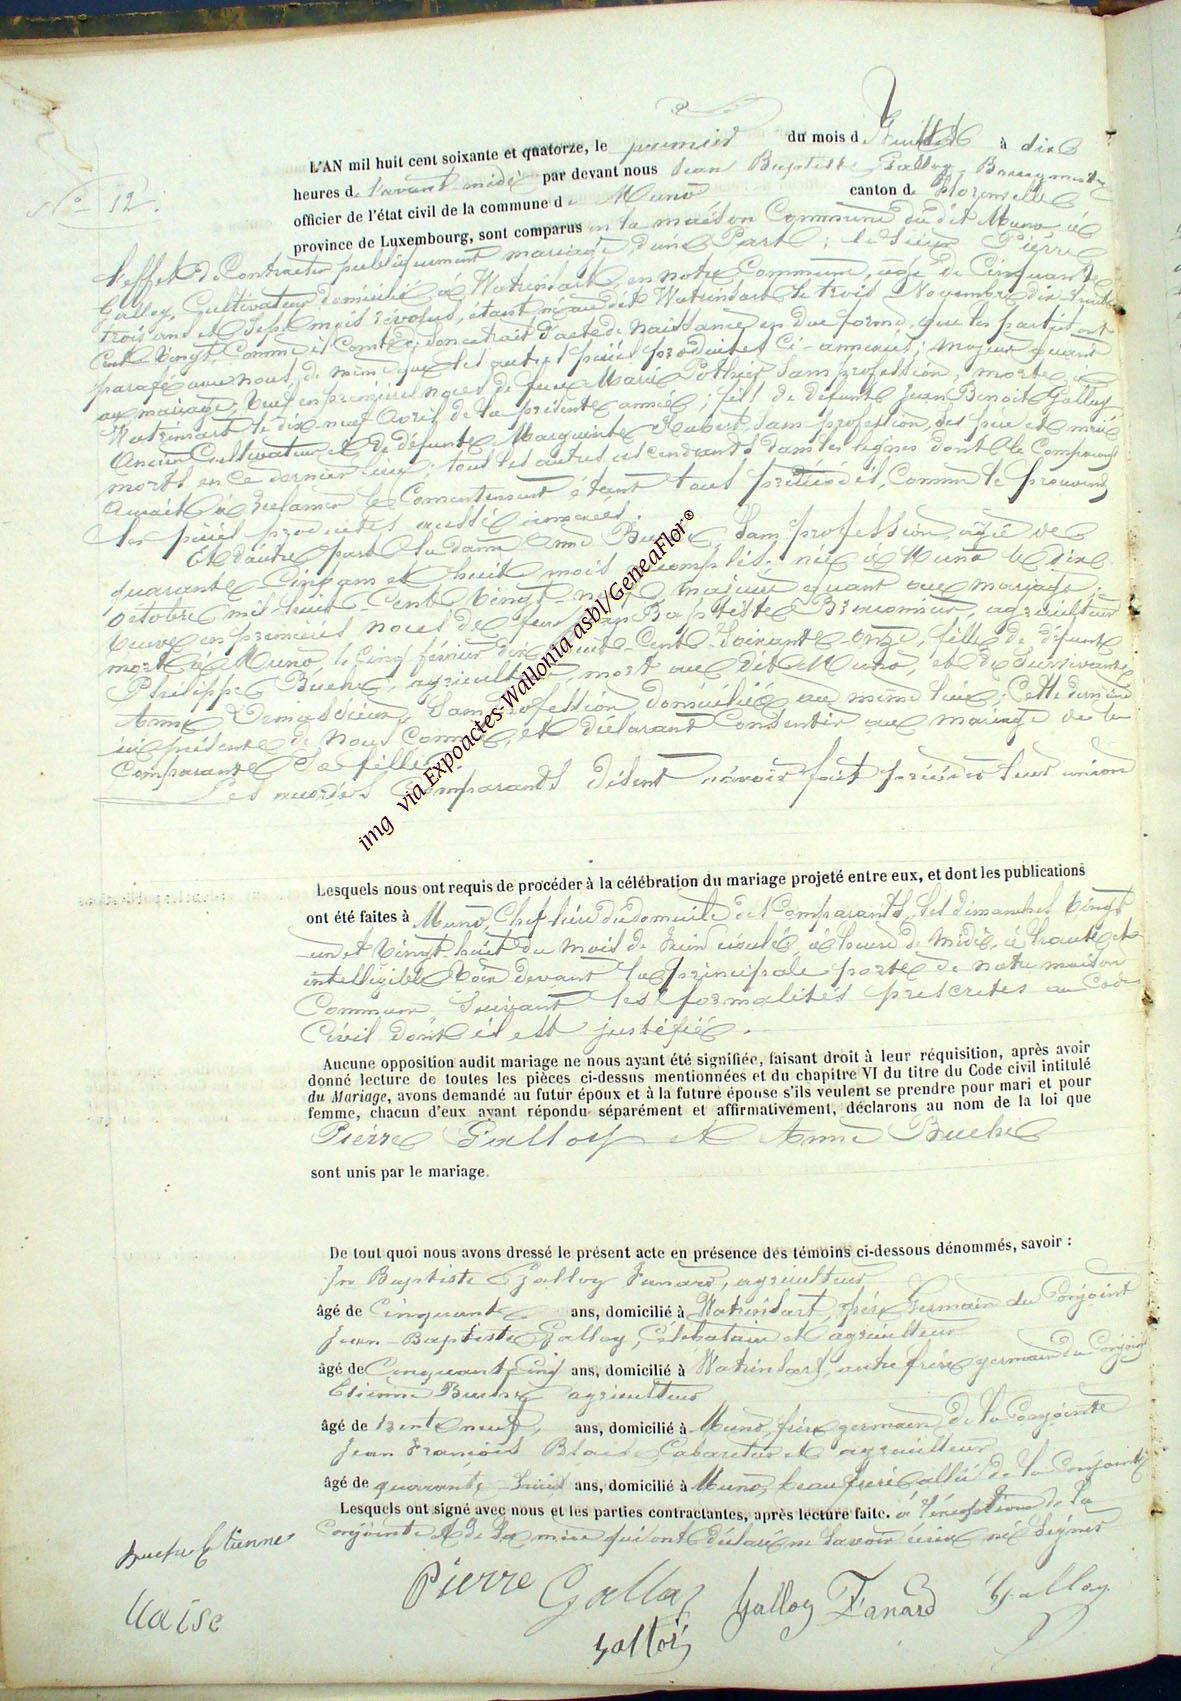 L'AN mil huit cent soixante et quatorze, le premier du mois d Juillet à dix
N° 12. heures de l'avant-midi par devant nous Jean Baptiste Galloy, Bourgmestre
officier de l'état civil de la commune de Muno canton de Florenville
province de Luxembourg, sont comparus en la maison Commune du dit Muno, à
l'effet de Contracter publiquement mariage, d'une Part ; le sieur Pierre
Galloy, Cultivateur domicilié à Watrinsart, en notre Commune, âgé de Cinquante
trois ans et Sept mois révolus, étant né au dit Watrinsart le trois Novembre dix-huit
Cent Vingt, Comme il Conste de son extrait d'acte de naissance en due forme, que les parties ont
parafé avec nous, de même que les autres pièces produites Ci-annexées ; majeur quant
au mariage, Veuf en premières noces de feue Marie Pothier, Sans profession, morte à
Watrinsart le dix-neuf Avril de la présente année ; fils de défunts Jean Benoit Galloy,
Ancien Cultivateur et de défunte Marguerite Hubert, sans profession, ses père et mère
morts en ce dernier lieu ; tous les autres ascendants dans les lignes dont le Comparant
aurait à réclamer le Consentement étant tous prédécédés, Comme le prouvent
les pièces produites aussi annexées.
Et d'autre part la dame Anne Buche, Sans profession, âgée de
quarante Cinq ans et huit mois accomplis, née à Muno le dix
octobre mil huit Cent Vingt-, majeure quant au mariage,
Veuve en premières noces de feu Jean Baptiste, agriculteur
mort à Muno, le Cinq février dix huit Cent Soixante onze, fille de défunt
Philippe Buche, agriculteur, mort au dit Muno, et de Survivante
Anne, Sans profession domiciliée au même lieu ; Cette dernière
ici présente de nous Connue, et déclarant Consentir au mariage de la
Comparante Sa fille.
Les Comparants disent n'avoir fait précéder leur union
Lesquels nous ont requis de procéder à la célébration du mariage projeté entre eux, et dont les publications
ont été faites à Muno, Chef-lieu du domicile des Comparants, les dimanches Vingt
un et Vingt-huit du mois de Juin écoulé, à l'heure de Midi, à haute et
intelligible Voix devant la principale porte de notre maison
Commune Suivant les formalités prescrites au Code
Civil dont il est justifié.
Aucune opposition audit mariage ne nous ayant été signifiée, faisant droit à leur réquisition, après avoir
donné lecture de toutes les pièces ci-dessus mentionnées et du chapitre VI du titre du Code civil intitulé
du Mariage, avons demandé au futur époux et à la future épouse s'ils veulent se prendre pour mari et pour
femme, chacun d'eux ayant répondu séparément et affirmativement, déclarons au nom de la loi que
Pierre Galloy et Anne Buche
sont unis par le mariage.
De tout quoi nous avons dressé le présent acte en présence des témoins ci-dessous dénommés, savoir :
Jn Baptiste Galloy Fanard, agriculteur
âgé de Cinquante ans, domicilié à Watrinsart, frère Germain du Conjoint
Jean-Baptiste Galloy, Célibataire et agriculteur
âgé de Cinquante Cinq ans, domicilié à Watrinsart, autre frère germain du Conjoint
Etienne Buche, agriculteur
âgé de trente neuf, ans, domicilié à Muno, frère germain de la Conjointe
Jean François Blaise Cabaretier et agriculteur
âgé de quarante-huit ans, domicilié à Muno, beau frère allié de la Conjointe
Lesquels ont signé avec nous et les parties contractantes, après lecture faite. à l'exception de la
Conjointe et de Sa mère qui ont déclaré ne Savoir écrire ni Signer
Buche Etienne
Pierre Galloy Galloy Fanard Galloy
Galloy
img via Expoactes-Wallonia asbl/GeneaFlor®